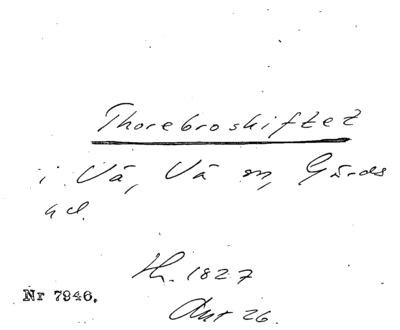 Thorebroskiftet
i Vä, Vä sn, Gärds
hd.
H. 1827
Nr 7946.
Ant 26.